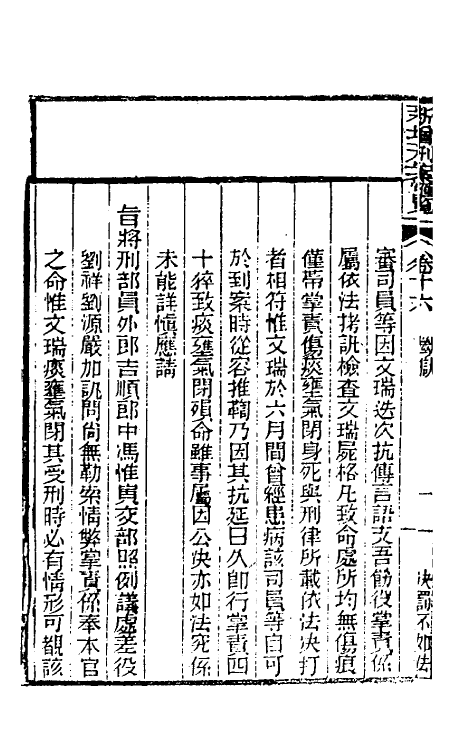 新增刑案匯覽
卷十六
斷獄
一
決罰不如法
審司員等因文瑞迭次抗傳言語支吾飭役掌責係
屬依法拷訊檢查文瑞屍格凡致命處所均無傷痕
僅帶掌責傷痰壅氣閉身死與刑律所載依法决打
者相符惟文瑞於六月間曾經患病該司員等自可
於到案時從容推鞫乃因其抗延日久卽行掌責四
十猝致痰壅氣閉殞命雖事屬因公决亦如法究係
未能詳愼應請
旨將刑部員外郎吉順郎中馮惟貴交部照例議處差役
劉祥劉源嚴加訊問尚無勒索情弊掌責係奉本官
之命惟文瑞痰壅氣閉其受刑時必有情形可觀該